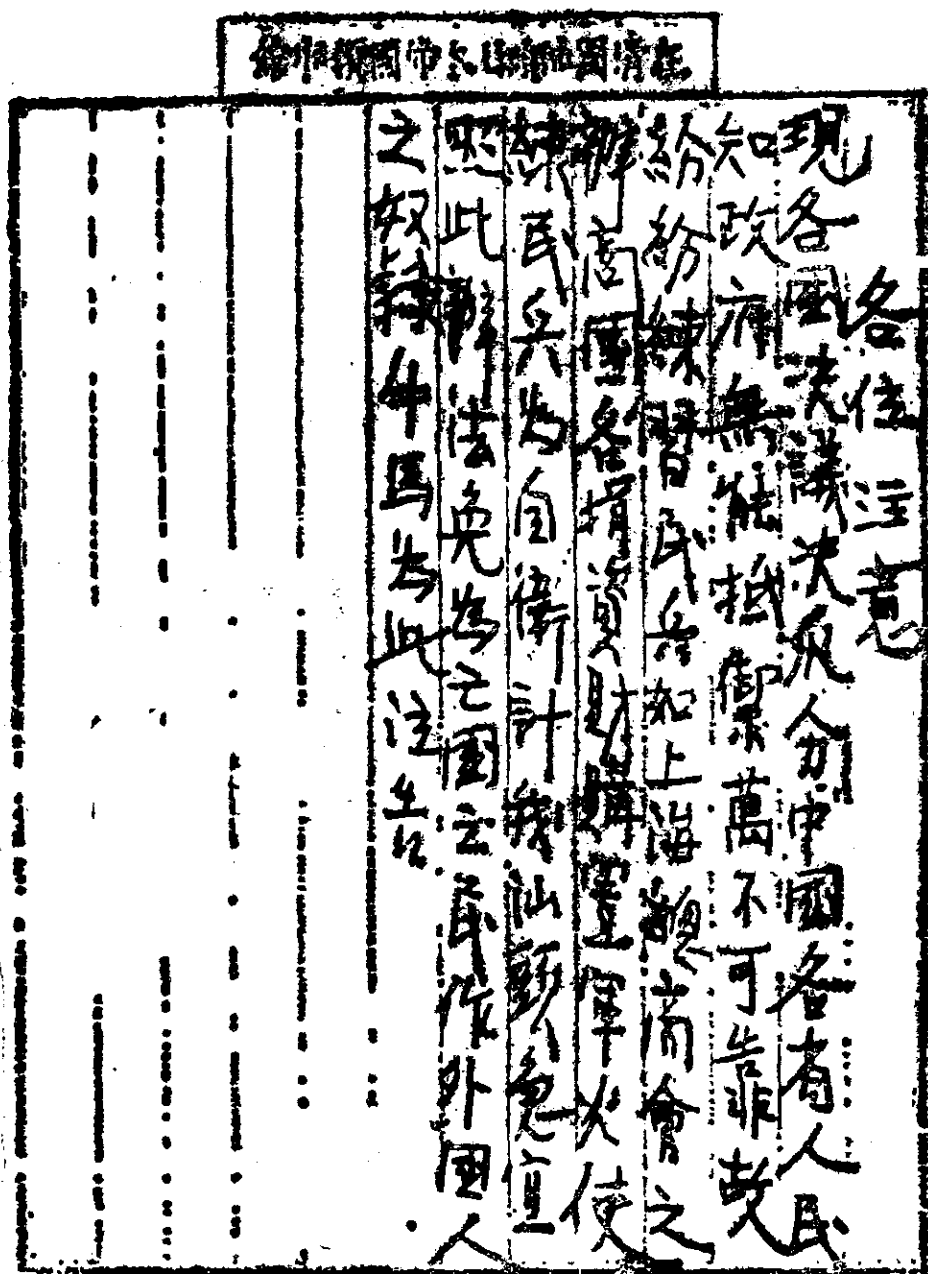 在清國汕頭日本帝國領事館
各位注意
現各國決議決瓜分中國各省人民
知政府無能抵禦萬不可靠故
紛紛練習民兵如上海總商會之
辦商團各捐資財購置軍火使
練民兵為自衛計我汕頭急宜
照此辦法免為亡國之民作外國人
之奴隸牛馬為此